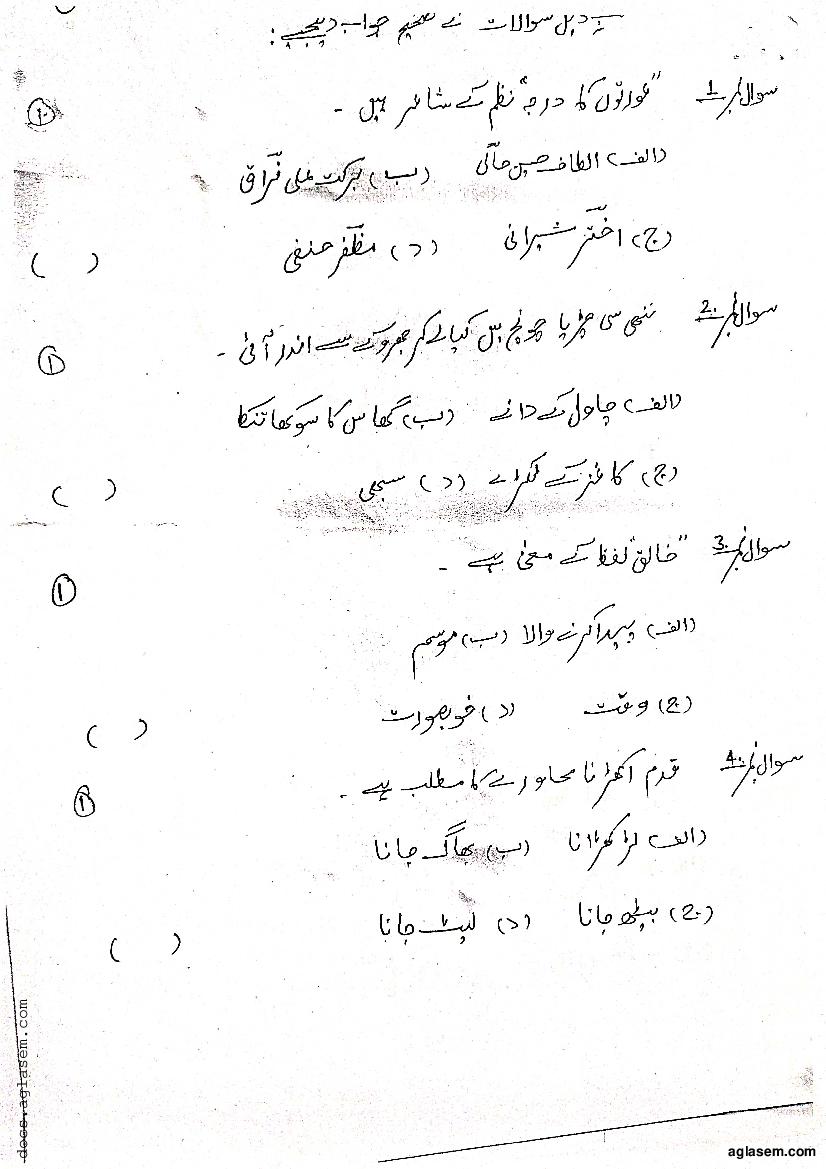 ذیل سوالات کے صحیح جواب دیجیے :
سوال نمبر 1 "عورتوں کا درجہ" نظم کے شاعر ہیں ۔ ①
(الف) الطاف حسین حالی (ب) برکت علی فراق
(ج) اختر شیرانی (د) مظفر حنفی ( )
سوال نمبر 2 ننھی سی چڑیا چونچ میں کیا لے کر جھروکے سے اندر آئی ۔ ①
(الف) چاول کے دانے (ب) گھاس کا سوکھا تنکا
(ج) کاغذ کے ٹکڑے (د) سبھی ( )
سوال نمبر 3 "خالق" لفظ کے معنی ہے ۔ ①
(الف) پیدا کرنے والا (ب) موسم
(ج) وقت (د) خوبصورت ( )
سوال نمبر 4 قدم اکھڑنا محاورے کا مطلب ہے ۔ ①
(الف) لڑکھڑانا (ب) بھاگ جانا
(ج) بیٹھ جانا (د) لپٹ جانا ( )
docs.aglasem.com
aglasem.com